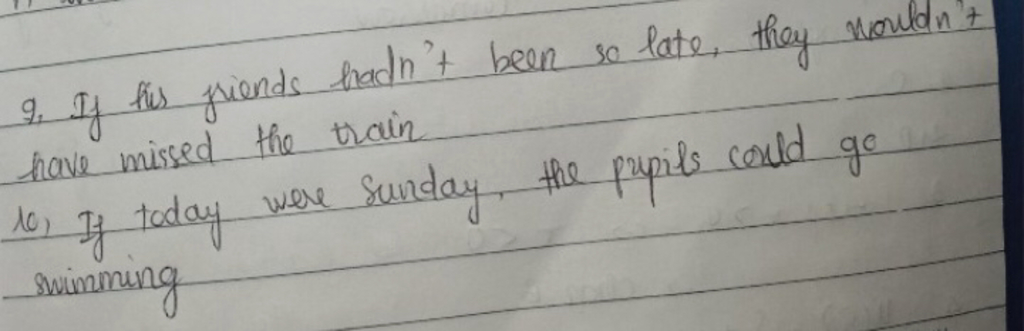 9, If his friends hadn't been so late, they wouldn't
have missed the train
10, If today were Sunday, the pupils could go
swimming